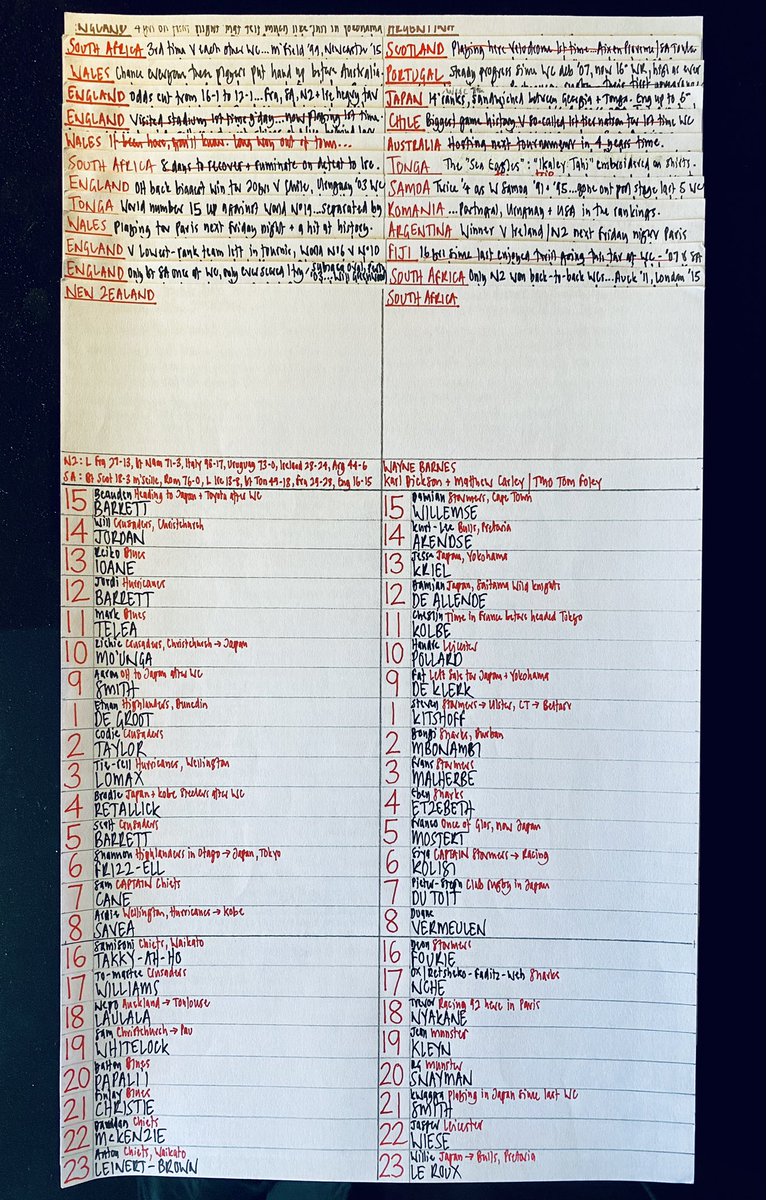 ENGLAND ARGENTINA
SOUTH AFRICA 3rd time v each other WC... M'field '99, Newcastle '15 SCOTLAND Playing here Velodrome 1st time... Aix en Provence / SA
WALES Chance everyone these players put hand up before Australia. PORTUGAL Steady progress since WC deb '07, now 16th WR, high as ever
ENGLAND Odds cut from 16-1 to 12-1... Fra, SA, NZ + Ire heavy fav JAPAN 14th ranks, sandwiched between Georgia + Tonga. Eng up to 6th
ENGLAND Visited stadium 1st time y'day... now playing 1st time. CHILE Biggest game history v so-called 1st tier nation for 1st time WC
WALES If been here, you'll know. Long way out of town... AUSTRALIA Hosting next tournament in 4 years time.
SOUTH AFRICA 8 days to recover + ruminate on defeat to Ire. TONGA The "Sea Eagles": "Ikaley Tahi" embroidered on shirts.
ENGLAND OH back biggest win for 20 yrs v Chile, Uruguay '03 WC SAMOA Twice 4 as W Samoa '91 + '95... gone out pool stage last 5 WC
TONGA World number 15 up against World No 19... separated by ROMANIA ...Portugal, Uruguay + USA in the rankings.
WALES Playing for Paris next Friday night + a bit of history. ARGENTINA Winner v Ireland/NZ next Friday night Paris
ENGLAND v Lowest-rank team left in tournie, World No 6 v No 10 FIJI 16 yrs since last enjoyed
ENGLAND Only bt SA once at WC, only ever scored 1 try SOUTH AFRICA Only NZ won back-to-back WCs... Auck '11, London '15
NEW ZEALAND SOUTH AFRICA
NZ: L Fra 27-13, bt Nam 71-3, Italy 96-17, Uruguay 73-0, Ireland 28-24, Arg 44-6 WAYNE BARNES
SA: Bt Scot 18-3 m'seille, Rom 76-0, L Ire 13-8, bt Ton 49-18, Fra 29-28, Eng 16-15 Karl Dickson + Matthew Carley / TMO Tom Foley
15 Beauden Heading to Japan + Toyota after WC
BARRETT
15 Damian Stormers, Cape Town
WILLEMSE
14 Will Crusaders, Christchurch
JORDAN
14 Kurt-Lee Bulls, Pretoria
ARENDSE
13 Reiko Blues
IOANE
13 Jesse Japan, Yokohama
KRIEL
12 Jordi Hurricanes
BARRETT
12 Damian Japan, Saitama Wild Knights
DE ALLENDE
11 Mark Blues
TELEA
11 Cheslin Time in France before headed Tokyo
KOLBE
10 Richie Crusaders, Christchurch → Japan
MO'UNGA
10 Handre Leicester
POLLARD
9 Aaron Off to Japan after WC
SMITH
9 Faf Left Sale for Japan + Yokohama
DE KLERK
1 Ethan Highlanders, Dunedin
DE GROOT
1 Steven Stormers → Ulster, CT → Belfast
KITSHOFF
2 Codie Crusaders
TAYLOR
2 Bongi Sharks, Durban
MBONAMBI
3 Tie-rell Hurricanes, Wellington
LOMAX
3 Frans Stormers
MALHERBE
4 Brodie Japan + Kobe Steelers after WC
RETALLICK
4 Eben Sharks
ETZEBETH
5 Scott Crusaders
BARRETT
5 Franco Once of Glos, now Japan
MOSTERT
6 Shannon Highlanders in Otago → Japan, Tokyo
FRIZZ-ELL
6 Siya CAPTAIN Stormers → Racing
KOLISI
7 Sam CAPTAIN Chiefs
CANE
7 Pieter-Steph Club rugby in Japan
DU TOIT
8 Ardie Wellington, Hurricanes → Kobe
SAVEA
8 Duane
VERMEULEN
16 Samisoni Chiefs, Waikato
TAKKY-AH-HO
16 Deon Stormers
FOURIE
17 To-maytee Crusaders
WILLIAMS
17 OX / Retsheko-Faditz-weh Sharks
NCHE
18 Nepo Auckland → Toulouse
LAULALA
18 Trevor Racing 92 here in Paris
NYAKANE
19 Sam Christchurch → Pau
WHITELOCK
19 Jean Munster
KLEYN
20 Dalton Blues
PAPALI'I
20 RG Munster
SNAYMAN
21 Finlay Blues
CHRISTIE
21 Kwagga Playing in Japan since last WC
SMITH
22 Damian Chiefs
McKENZIE
22 Jasper Leicester
WIESE
23 Anton Chiefs, Waikato
LEINERT-BROWN
23 Willie Japan → Bulls, Pretoria
LE ROUX